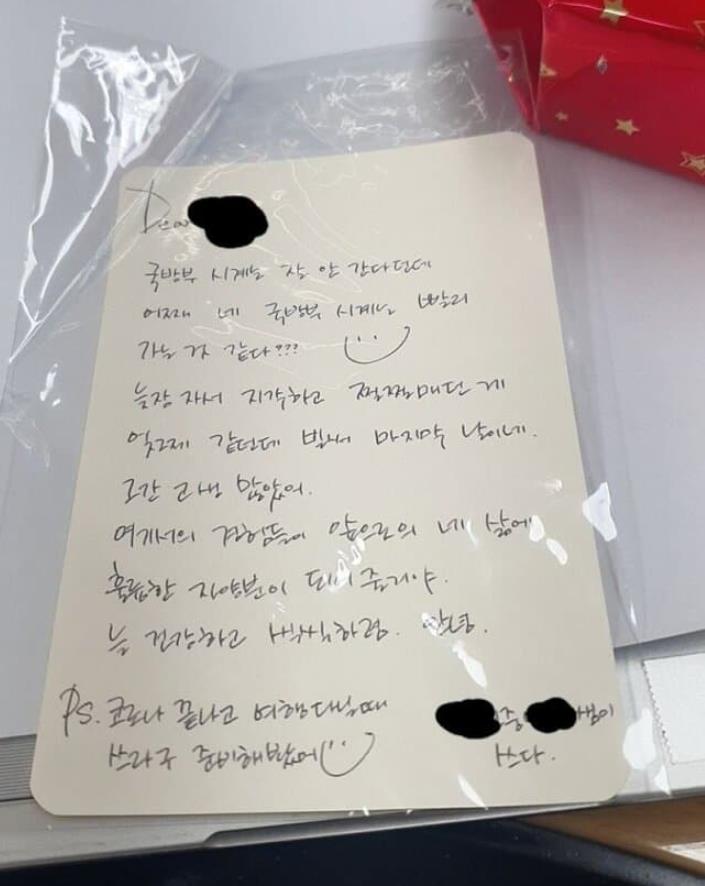 Dear
국방부 시계는 잘 안 간다던데
어째 네 국방부 시계는 빨리
가는 것 같다???
늦잠 자서 지각하고 쩔쩔매던 게
엊그제 같던데 벌써 마지막 날이네.
그간 고생 많았어.
여기서의 경험들이 앞으로의 네 삶에
훌륭한 자양분이 되어 줄거야.
늘 건강하고 씩씩하렴. 안녕.
PS. 코로나 끝나고 여행다닐때
쓰라구 준비해봤어
중 쌤이
쓰다.